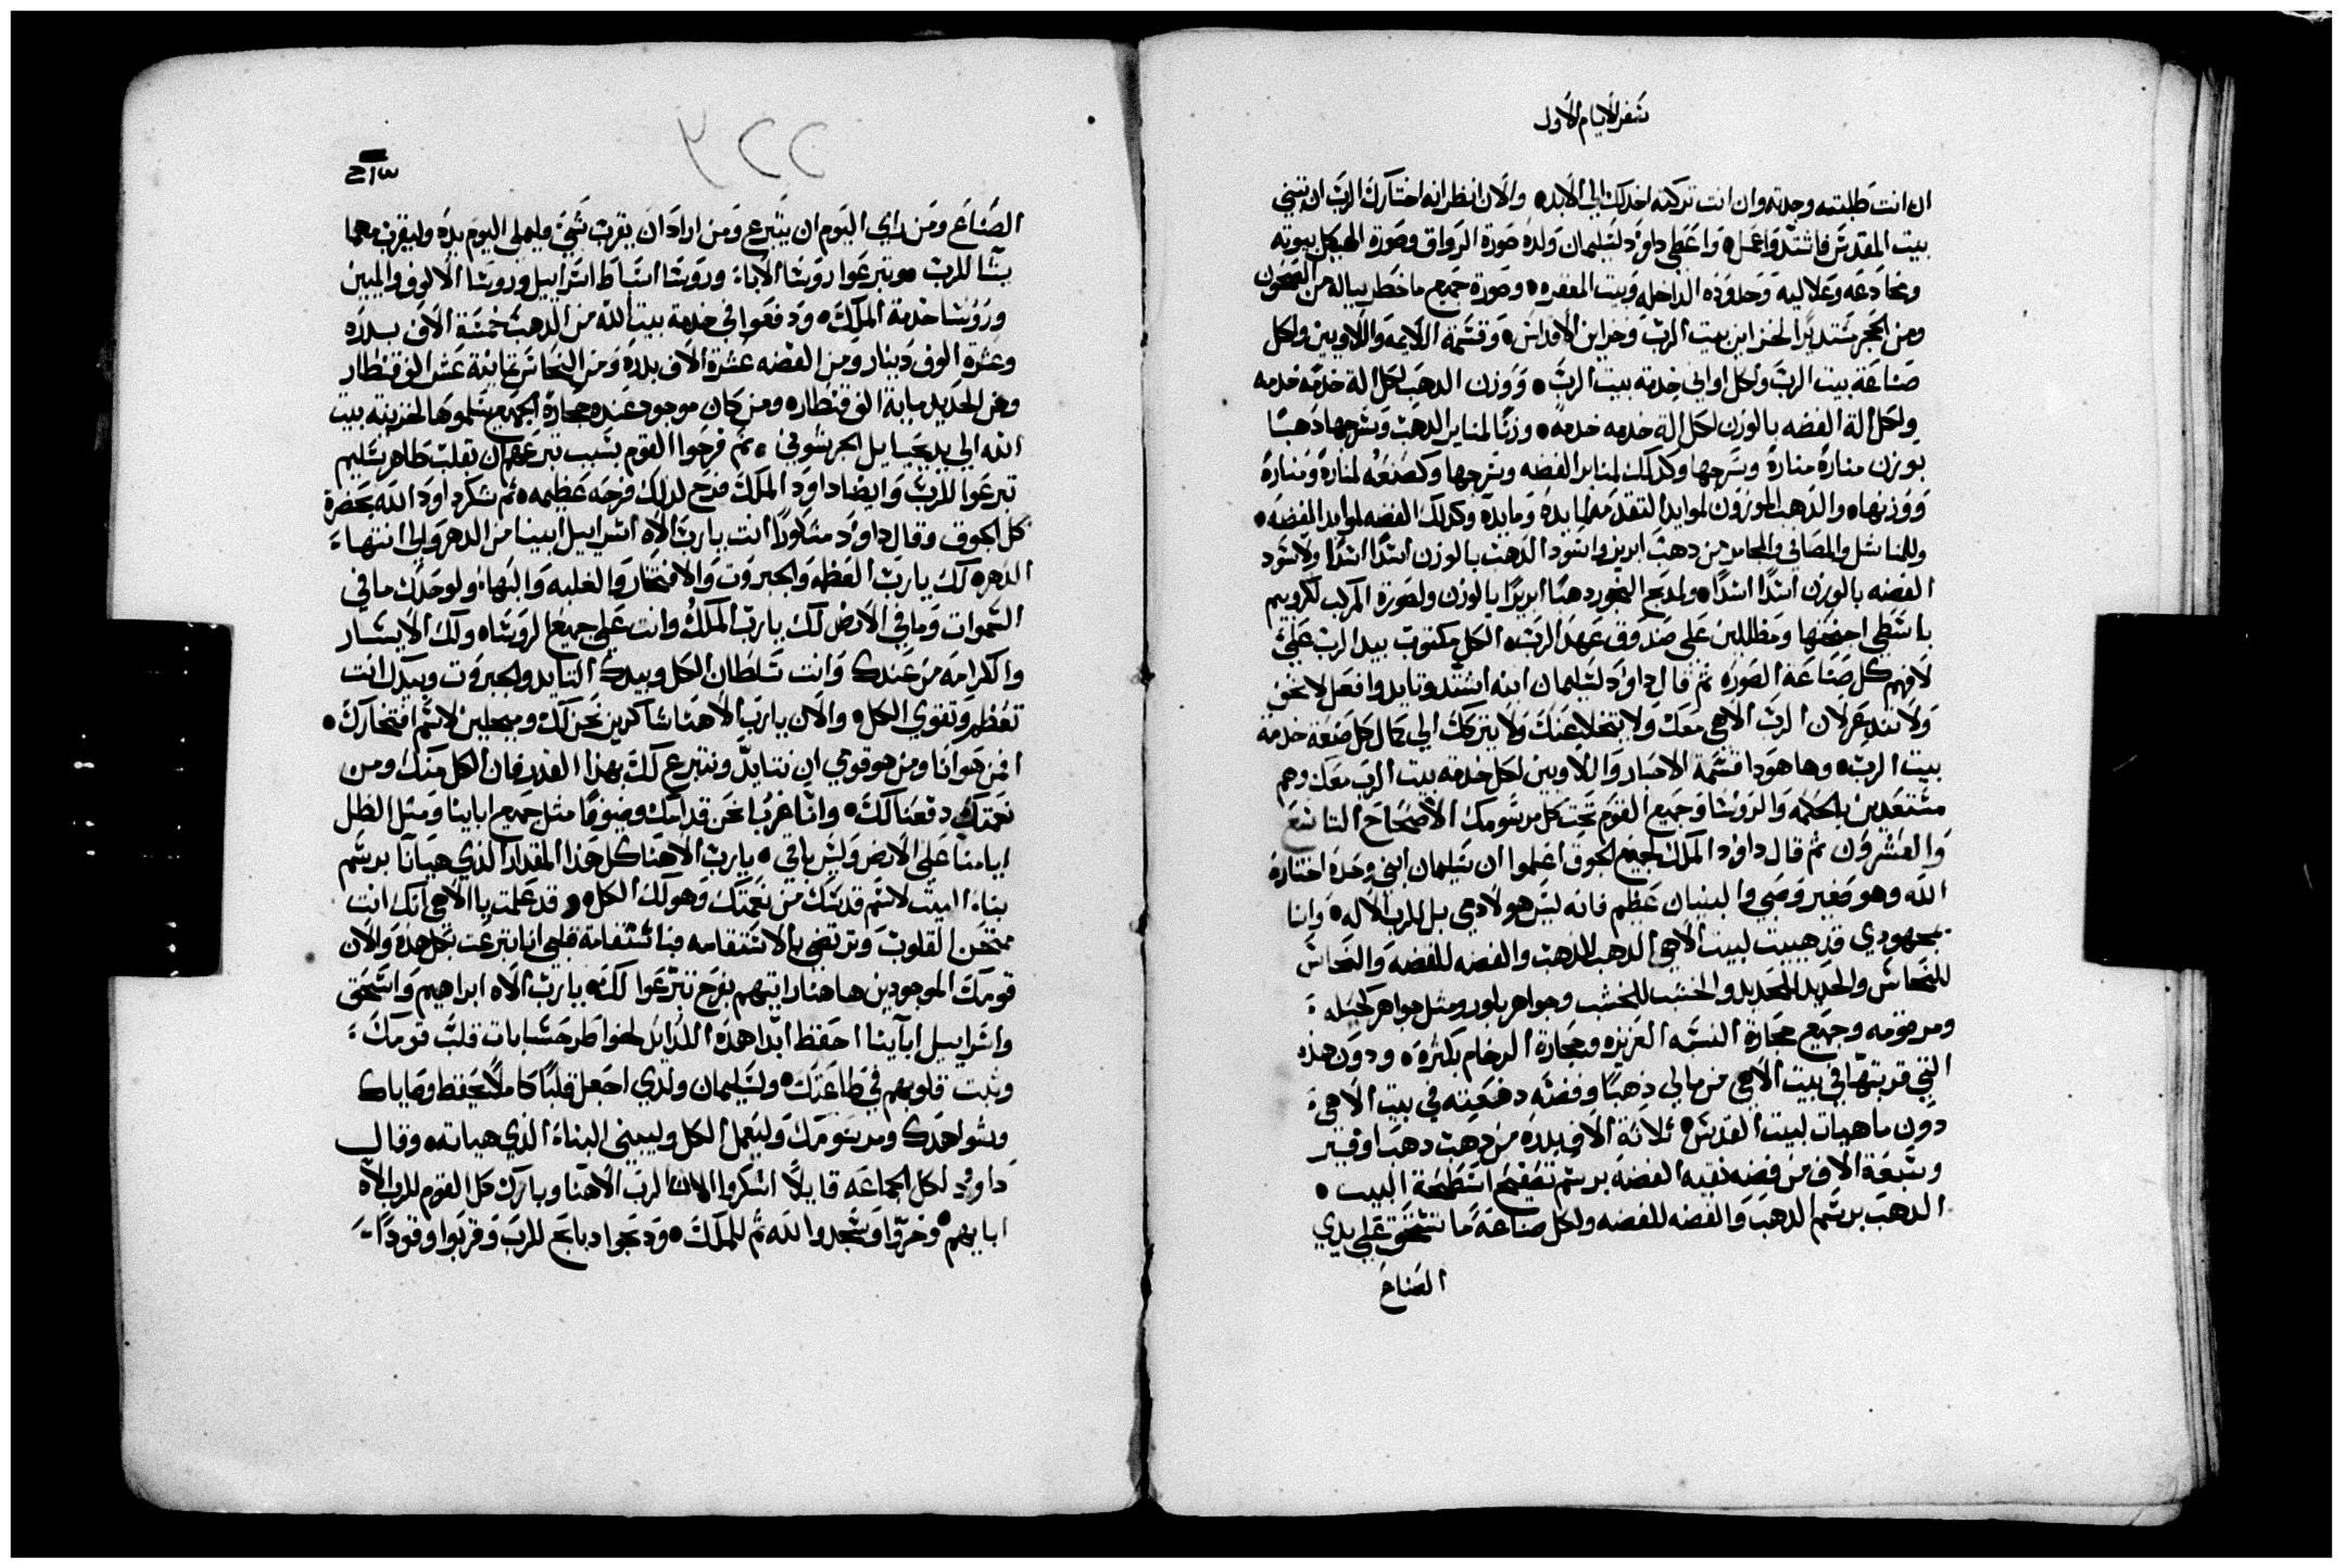 سفر الايام الاول
ان انت طلبته وجدته وان انت تركته اخدلك الي الابد والان انظر انه اختارك الرب ان تبني
بيت المقدس فاشتد واعمل واعطي داوود لسليمان ولده صورة الرواق وصورة الهيكل بيوته
ومخادعه وعلاليه وحدوده الداخله وبيت المغفره وصورة جميع ما خطر بباله من الصحون
ومن الحجر مستديرًا لخزاين بيت الرب وخزاين الاقداس وقسمة الاليمه واللاويين ولكل
صناعة بيت الرب ولكل اواني خدمة بيت الرب ووزن الدهب لكل الة خدمه خدمه
ولكل الة الفضه بالوزن لكل الة خدمه خدمه وزنًا لمناير الدهب وسرجها دهبًا
بوزن منارة منارة وسرجها وكدلك لمناير الفضه وسرجها وكصنعه لمنارة ومنارة
ووزنها والدهب الموزون لموايد التقدمه لمايده ومايده وكدلك الفضه لموايد الفضه
وللمناشل والمصافي والمجامر من دهب ابريز واسود الدهب بالوزن اسدًا اسدًا ولاسود
الفضه بالوزن اسدًا اسدًا ولمدبح البخور دهبًا ابريزًا بالوزن ولصورة المركب لكروبيم
باسطي اجنحتها ومظللين علي صندوق عهد الرب الكل مكتوب بيد الرب علي
لافهم كل صناعة الصوره ثم قال داوود لسليمان ابنه اشتد وتايد وافعل لا تخف
ولا تندعر لان الرب الاهي معك ولا يتخلا عنك ولا يتركك الي كمال كل صنعة خدمة
بيت الرب وها هودا قسمة الاحبار واللاويين لكل خدمة بيت الرب معك وهم
مستعدين بالحكمه والروسا وجميع القوم تحت كل مرسومك الاصحاح التاسع
والعشرون ثم قال داود الملك لجميع الجوق اعلموا ان سليمان ابني وحده اختاره
الله وهو صغير وصبي والبنيان عظيم فانه ليس هو لادمي بل للرب الاله وانا
بمجهودي قد هييت لبيت الاهي الدهب للدهب والفضه للفضه والنحاس
للنحاس والحديد للحديد والخشب للخشب وجواهر بلور ومثل جواهر كحيله
ومرقومه وجميع حجارة النسبه العزيزه وحجارة الرخام بكثره ودون هذه
التي قربتها في بيت الاهي من مالي دهبًا وفضه دفعته في بيت الاهي
دون ما هيات لبيت القدس ثلاثة الاف بدره من دهب دهب اوفير
وسبعة الاف من فضه نقيه الفضه برسم تصفيح اسطحة البيت
الدهب برسم الدهب والفضه للفضه ولكل صناعة ما تستحق علي يدي
الصناع
٣٢٢
الصناع ومن راي اليوم ان يتبرع ومن اراد ان يقرب شي فليملي اليوم يده وليقرب مهما
يشا للرب وتبرعوا روسا الابا وروسا اسباط اسراييل وروسا الالوف والميين
وروسا خدمة الملك ودفعوا في خدمة بيت الله من الدهب خمسة الاف بدره
وعشرة الوف دينار ومن الفضه عشرة الاف بدره ومن النحاس ثمانية عشر الف قنطار
ومن الحديد ماية الف قنطار ومن كان موجود عنده حجارة الجميع سلموها لخزينة بيت
الله الي يد يحيايل الحرشوني ثم فرحوا القوم بسبب تبرعهم ان بقلب طاهر سليم
تبرعوا للرب وايضا داود الملك فرح لدلك فرحه عظيمه ثم شكر داود الله بحضرة
كل الجوق وقال داود متلوا انت يا رب الاه اسراييل ابينا من الدهر والي انتهاء
الدهر لك يا رب العظمه والجبروت والافتخار والغلبه والبهاء ولوحدك ما في
السموات وما في الارض لك يا رب الملك وانت علي جميع الروسا ولك الايسار
والكرامه من عندك وانت سلطان الكل وبيدك التايد والجبروت وبيدك انت
تعظم وتقوي الكل والان يا رب الاهنا شاكرين نحن لك ومبجلين لاسم افتخارك
افمن هو انا ومن هو قومي ان نتايد ونتبرع لك بهذا القدر فان الكل منك ومن
نعمتك دفعنا لك واننا غربا نحن قدامك وضيوفا مثل جميع اباينا ومثل الظل
ايامنا علي الارض وليس باقي يا رب الاهنا كل هذا المقدار الذي هيانا برسم
بناء البيت لاسم قدسك من نعمتك وهو لك الكل وقد علمت يا الاهي انك انت
ممتحن القلوب وترتضي بالاستقامه فباستقامة قلبي انا تبرعت بكل هده والان
قومك الموجودين هاهنا رايتهم بفرح تبرعوا لك يا رب الاه ابراهيم واسحق
واسراييل اباينا احفظ ابدا هده السراير لخواطر حسابات قلب قومك
وثبت قلوبهم في طاعتك ولسليمان ولدي اجعل قلبًا كاملًا يحفظ وصاياك
وشواهدك ومرسومك وليعمل الكل وليبني البناء الذي هياته وقال
داوود لكل الجماعه قايلًا اشكروا الان الرب الاهنا وبارك كل القوم للرب الاه
ابايهم وخروا وسجدوا لله ثم للملك ودبحوا دبايح للرب وقربوا وقودًا